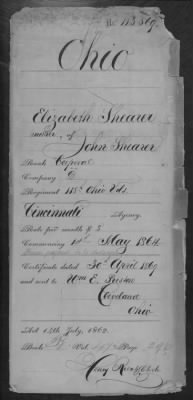 No. 113.869.
Ohio
Elizabeth Shearer
mother of
John Shearer
Rank Corporal
Company
Regiment 118th Ohio Vols
Cincinnati Agency.
Rate per month $ 8
Commencing 1st May 1864
Certificate dated 30th April 1869
and sent to Wm E. Preston
Cleveland
Ohio
Act 14th July, 1862.
Book Vol. Page
Clerk